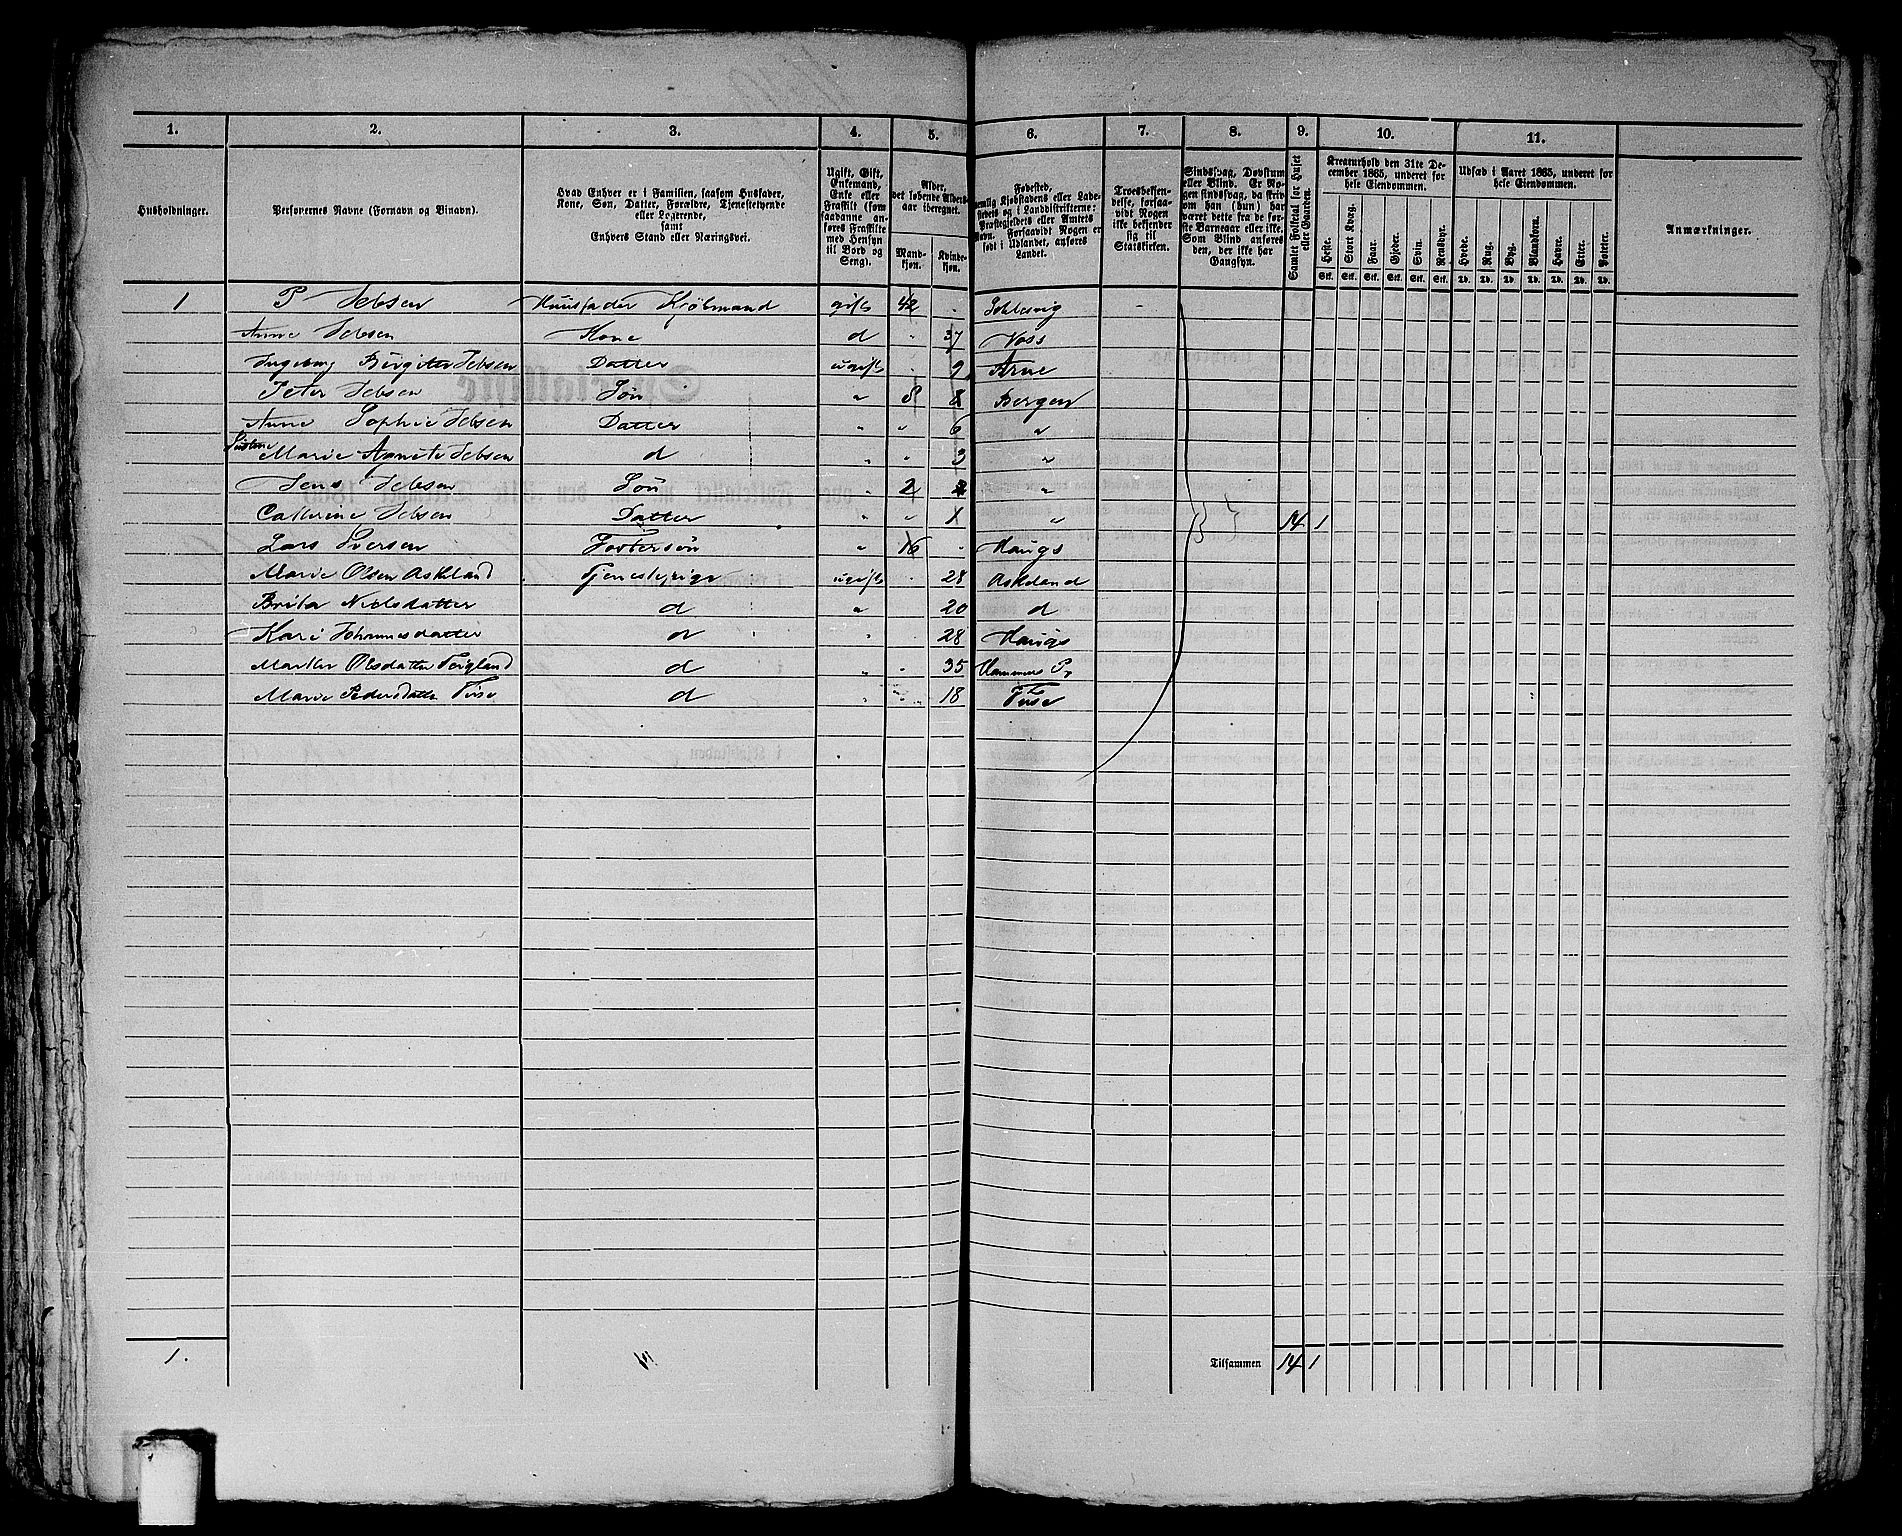 1. 2. 3. 4. 5. 6. 7. 8. 9. 10. 11.
Husholdninger.
Personernes Navne (Fornavn og Binavn).
Hvad Enhver er i Familien, saasom Husfader,
Kone, Søn, Datter, Forældre, Tjenestetyende
eller Logerende,
samt
Enhvers Stand eller Næringsvei.
Ugift, Gift,
Enkemand,
Enke eller
Fraskilt (som
saadanne an-
føres Fraskilte
med Hensyn
til Bord og
Seng).
Alder,
det løbende Alders-
aar iberegnet.
Mand-
kjøn.
Kvinde-
kjøn.
Fødested,
nemlig Kjøbstadens eller Lade-
stedets og i Landdistrikterne:
Præstegjeldets eller Amtets
Navn. Forsaavidt Nogen er
født i Udlandet, anføres
Landet.
Troesbekjen-
delse, forsaa-
vidt Nogen
ikke bekjender
sig til
Statskirken.
Sindssvag, Døvstum
eller Blind. Er No-
gen sindssvag, da skriv
om han (hun) har
været dette fra de før-
ste Barneaar eller ikke.
Som Blind anføres
den, der ikke har
Gangsyn.
Samlet Folketal for Huset
eller Gaarden.
Kreaturhold den 31te De-
cember 1865, underet for
hele Eiendommen.
Heste. Stort Kvæg. Faar. Gjeder. Svin. Rensdyr.
Stk. Stk. Stk. Stk. Stk. Stk.
Udsæd i Aaret 1865, underet for
hele Eiendommen.
Hvede. Rug. Byg. Blandkorn. Havre. Erter. Poteter.
Td. Td. Td. Td. Td. Td. Td.
Anmærkninger.
1 P Jebsen Huusfader Kjøbmand gift 42 Schlesvig
Anne Jebsen Kone d 37 Voss
Ingeborg Birgitte Jebsen Datter ugift 9 Arne
Peter Jebsen Søn " 8 8 Bergen
Anne Sophie Jebsen Datter " " 6 "
Marie Agnete Jebsen d " " 3 "
Jens Jebsen Søn " 2 2 "
Cathrine Jebsen Datter " " 1 " 14 1
Lars Iversen Fostersøn " 16 Haugs
Marie Olsen Askeland Tjenestepige ugift 28 Askeland
Brita Nielsdatter d " 20 d
Kari Johannesdatter d " 28 Haugs
Marta Olsdatter Teigland d " 35 Hammers Pr
Marie Pedersdatter Fuse d " 18 Fuse
1.
Tilsammen 14 1